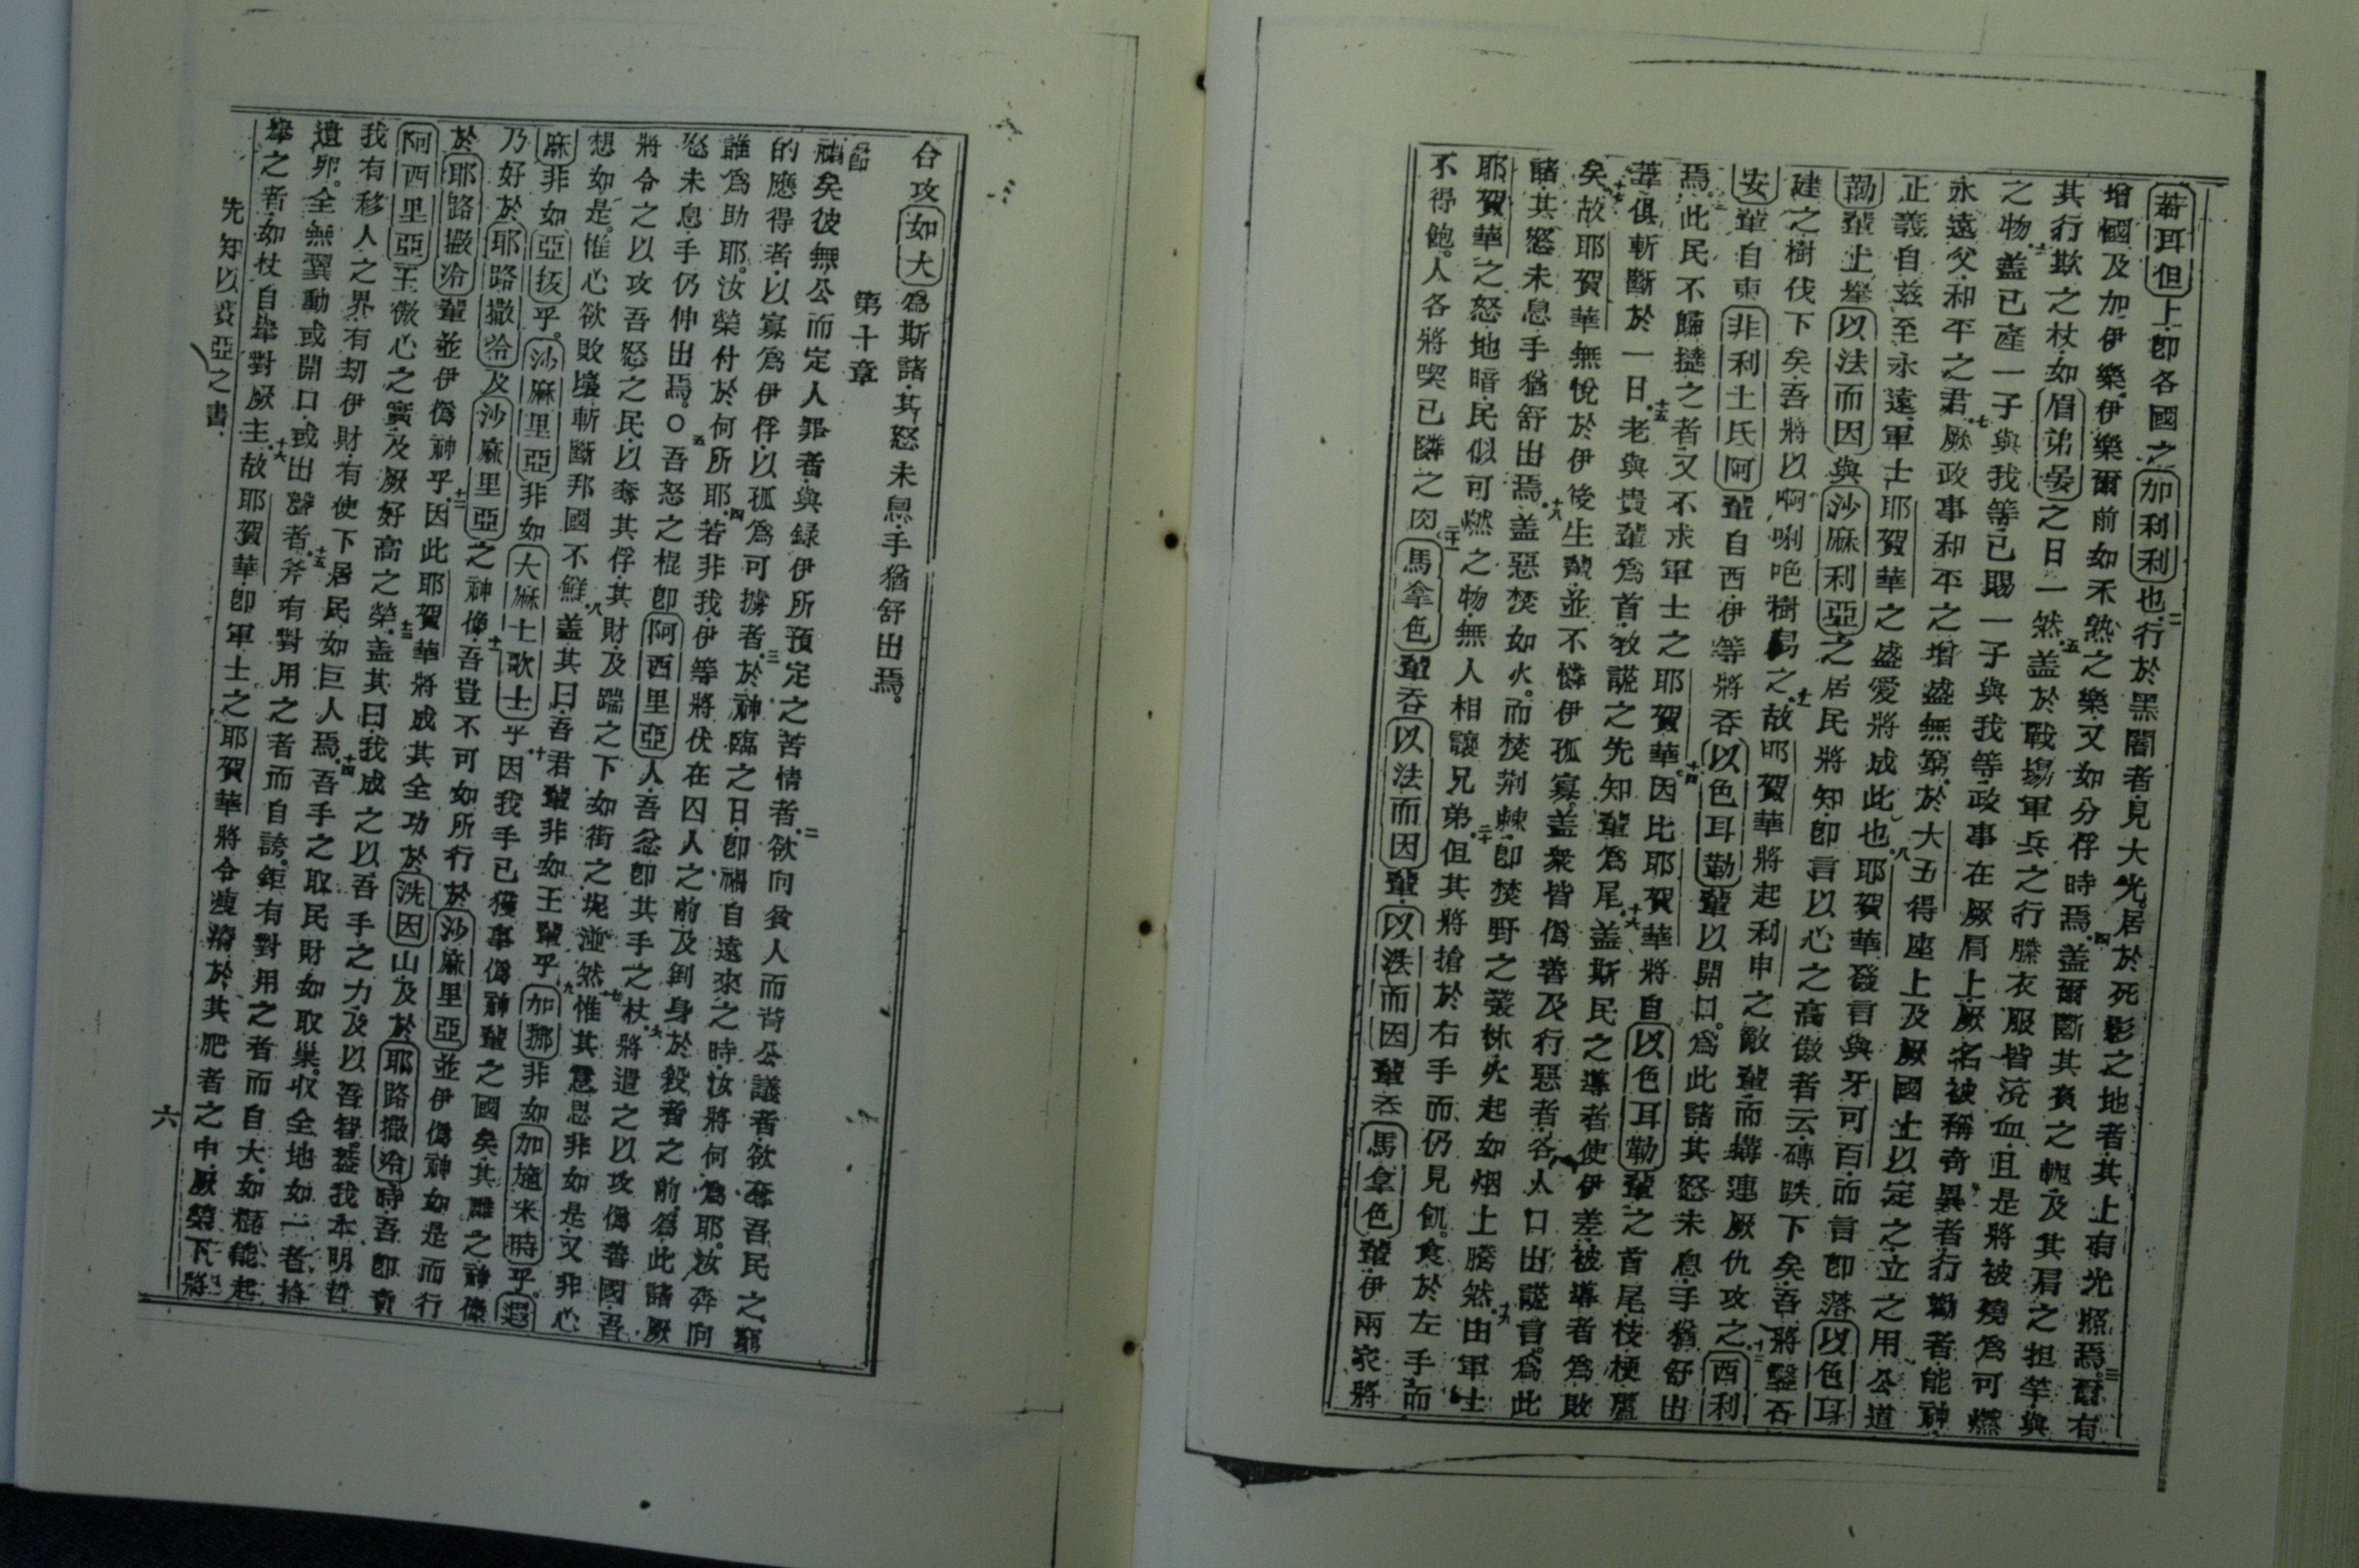 若耳但上卽各國之加利利也二行於黑闇者見大光居於死影之地者其上有光照焉三爾有
增國及加伊樂伊樂爾前如禾熟之樂又如分俘時焉四盖爾斷其負之軛及其肩之担竿與
其行欺之杖如眉弟晏之日一然五盖於戰場軍兵之行滕衣服皆流血且是將被燒爲可燃
之物六盖已產一子與我等已賜一子與我等政事在厥肩上厥名被稱奇異者行勸者能神
永遠父和平之君七厥政事和平之增盛無窮於大五得座上及厥國土以定之立之用公道
正義自玆至永遠軍士耶賀華之盛愛將成此也八耶賀華發言與牙可百而言卽落以色耳
勒輩上九以法而因與沙麻利亞之居民將知卽言以心之高傲者云十磚跌下矣吾將鑿石
建之樹伐下矣吾將以啊唎吧樹易之十一故耶賀華將起利申之敵輩而搆連厥仇攻之十二西利
安輩自東非利士氏阿輩自西伊等將吞以色耳勒輩以開口爲此諸其怒未息手猶舒出
焉十三此民不歸撻之者又不求軍士之耶賀華十四因此耶賀華將自以色耳勒輩之首尾枝梗蘆
葦俱斬斷於一日十五老與貴輩爲首敎謊之先知輩爲尾十六盖斯民之導者使伊差被導者爲敗
矣十七故耶賀華無悅於伊後生輩並不憐伊孤寡盖衆皆僞善及行惡者各人口出謊言爲此
諸其怒未息手猶舒出焉十八盖惡焚如火而焚荆棘卽焚野之叢林火起如烟上騰然十九由軍士
耶賀華之怒地暗民似可燃之物無人相讓兄弟二十但其將搶於右手而仍見飢食於左手而
不得飽人各將喫已隣之肉二一馬拿色輩吞以法而因輩以法而因輩吞馬拿色輩伊兩家將
合攻如大爲斯諸其怒未息手猶舒出焉
第十章
一節禍矣彼無公而定人罪者與録伊所預定之苦情者二欲向貧人而背公議者欲奪吾民之窮
的應得者以寡爲伊俘以孤爲可擄者三於神臨之日卽禍自遠來之時汝將何爲耶汝奔向
誰爲助耶汝榮付於何所耶四若非我伊等將伏在囚人之前及到身於殺者之前爲此諸厥
怒未息手仍伸出焉○五吾怒之棍卽阿西里亞人吾忿卽其手之杖六將遣之以攻僞善國吾
將令之以攻吾怒之民以奪其俘其財及踹之下如街之坭湴然七惟其意思非如是又非心
想如是惟心欲敗壞斬斷邦國不鮮八盖其曰吾君輩非如王輩乎九加挪非如加施米時乎遐
麻非如亞拔乎沙麻里亞非如大麻士歌士乎十因我手已獲事僞神輩之國矣其雕之神像
乃好於耶路撒冾及沙麻里亞之神像十一吾豈不可如所行於沙麻里亞並伊僞神如是而行
於耶路撒冾輩並伊僞神乎十二因此耶賀華將成其全功於洗因山及於耶路撒冾時吾卽責
阿西里亞王傲心之實及厥好高之榮十三盖其曰我成之以吾手之力及以吾智盖我本明哲
我有移人之界有刧伊財有使下居民如巨人焉十四吾手之取民財如取巢收全地如一者拾
遺卵全無翼動或開口或出聲者十五斧有對用之者而自誇鉅有對用之者而自大如棍能起
舉之者如杖自舉對厥主十六故耶賀華卽軍士之耶賀華將令瘦瘠於其肥者之中厥榮下將
先知以賽亞之書
六